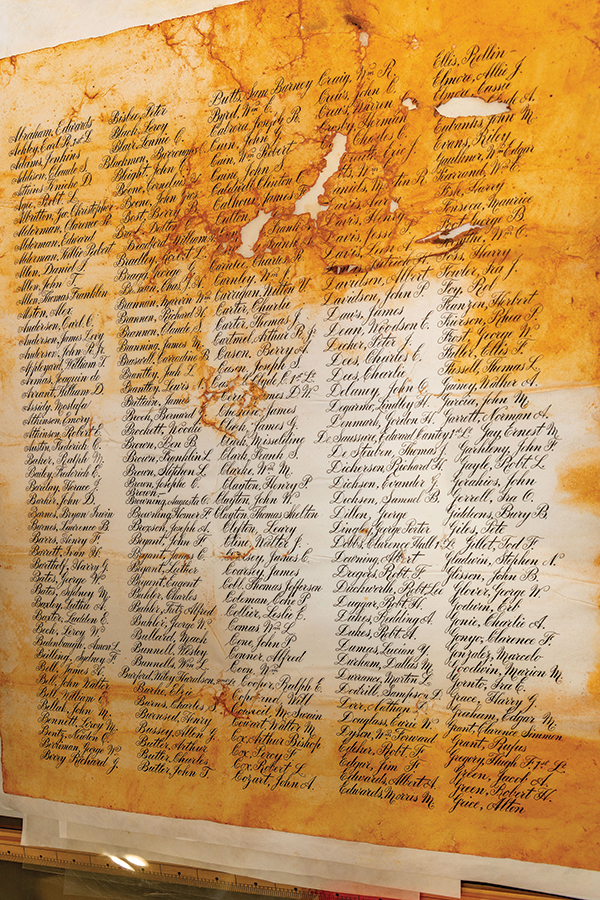 Abraham, Edwards
Ashley, Earl R. 1st L.
Adams, Jenkins
Addison, Claude S.
Akerman, Clarence R.
Akerman, Edward
Akerman, Tillie Robert
Allen, Daniel L.
Allen, John F.
Allen, Thomas Franklin
Alston, Alex
Andersen, Carl C.
Anderson, James Levy
Anderson, John R. Jr.
Applegard, William L.
Armas, Joaquin de
Arrant, William D.
Assidy, Mostafa
Atkinson, Emory
Atkinson, Robert E.
Austin, Frederick C.
Baker, Ralph W.
Bailey, Frederick E.
Bardley, Horace J.
Barker, John D.
Barnes, Bryan Irwin
Barnes, Lawrence B.
Barrs, Henry F.
Barrett, Ivan W.
Bartholf, Harry G.
Bates, George W.
Bates, Sydney M.
Baxley, Luther A.
Baxter, Ludden E.
Beck, Leroy W.
Beidenbaugh, Amon L.
Beiling, Sydney F.
Bell, James A.
Bell, John Walter
Bell, William
Bellah, John M.
Bennett, Leroy M.
Bentz, Newton C.
Berriman, George W.
Berry, Richard G.
Bisbee, Peter
Black, Leroy
Blair, Jennie C.
Blackmon, Burroughs
Blight, John
Boone, Cornelius
Boone, John Jas.
Bost, Berry
Bradford, William
Bradley, Robert L.
Bragg, George C.
Brannan, Marvin W.
Brannen, Richard H.
Brannon, Claude S.
Branning, James M.
Brantley, Jack L.
Brantley, Lewis
Brittain, James
Broch, Bernard
Brockett, Woodie
Brown, Ben B.
Brown, Franklin L.
Brown, Stephen L.
Brown, Josephe C.
Brown—
Browning, Augusta C.
Browning, Homer F.
Bryson, Joseph A.
Bryant, John F.
Bryant, James C.
Bryant, Luther
Bryant, Eugent
Buhler, Charles
Buhler, Fritz Alfred
Buhler, George W.
Bullard, Mack
Bunnell, Wesley
Bunnell, Wm L.
Burford, Wiley Haraldson, 1st L.
Burke, Elzie
Burns, Charles J.
Burnsed, Henry
Bussey, Allen G.
Butler, Arthur
Butler, Charles
Butler, John T.
Butts, Sam Barney
Byrd, Wm C.
Cabrera, Joseph R.
Cain, John G.
Cain, Wm Robert
Caine, John J.
Caldwell, Clinton C.
Calhoun, James F.
Carnley, Wm J.
Carragan, Milton H.
Carter, Charlie
Carter, Thomas J.
Cartmel, Arthur R. Jr
Cason, Berry A.
Cason, Joseph S.
Cheshire, James
Clark, James G.
Clark, Misselding
Clark, Frank S.
Clarke, Wm M.
Clayton, Henry P.
Clayton, John W.
Clayton, Thomas Shelton
Clyburn, Leary
Cline, Walter J.
Coarsey, James C.
Coarsey, James
Cobb, Thomas Jefferson
Coleman, Eche P.
Collier, Leslie E.
Comas, Wm C.
Cone, John P.
Conner, Alfred
Coon, Wm
Cooper, Ralph E.
Copeland, Will
Council, McSwain
Couart, Walter M.
Cox, Arthur Bishop
Cox, Percy F.
Cox, Robert L.
Cozart, John A.
Craig, Wm R.
Craus, John C.
Craus, Warren C.
Crosby, Herman
Charles C.
Davis, Henry
Davis, Jesse J.
Davis, Leon A.
Davidson, Albert
Davidson, John P.
Daws, James
Dean, Woodson C.
Decher, Peter J.
Dees, Charles C.
Dees, Charlie
Delaney, John C.
Degarmo, Lindley H.
Denmark, Jordon H.
De Saussure, Edward Cantey 1st L.
De Sterben, Thomas J.
Dickerson, Richard H.
Dickson, Evander G.
Dickson, Samuel B.
Dillon, George
Dingley, George Porter
Dobbs, Clarence Hall 1st L.
Downing, Albert
Driggers, Robt. F.
Duckworth, Robt. Lee
Duggar, Robt. H.
Dukes, Redding A.
Dukes, Robt. A.
Dumas, Lucian Y.
Durham, Dallas M.
Durrance, Martin L.
Dodrill, Sampson D.
Dorr, Nathan
Douglass, Currie W.
Dyson, Wm Forward
Edcher, Robt. F.
Edgar, Jim F.
Edwards, Albert A.
Edwards, Morris M.
Ellis, Rollin—
Elmore, Allie J.
Elmore, Cassie
Eubanks, John M.
Evans, Riley
Faulkner, Wm Edgar
Farrand, Wm C.
Fish, Harry
Fonseca, Maurice
Foss, Harry
Fowler, Ira J.
Foy, Rob
Franzen, Herbert
Frierson, Rhea P.
Frost, George W.
Fuller, Ellis F.
Fussell, Thomas L.
Gainey, Walter A.
Garcia, John M.
Garrett, Norman A.
Gay, Ernest M.
Garhleny, John F.
Gayle, Robt. L.
Gerakios, John
Gerrell, Ira C.
Gibbons, Berry B.
Giles, Pete
Gillet, Ted F.
Gladwin, Stephen A.
Glisson, John B.
Glover, George W.
Godwin, Ed
Gomie, Charlie A.
Gongo, Clarence F.
Gonzalez, Marcelo
Goodwin, Marion M.
Gornto, Ira C.
Grace, Harry G.
Graham, Edgar M.
Grant, Clarence Simmon
Grant, Rufus
Gregory, Hugh F. 1st L.
Green, Jacob A.
Green, Robert H.
Grice, Alton